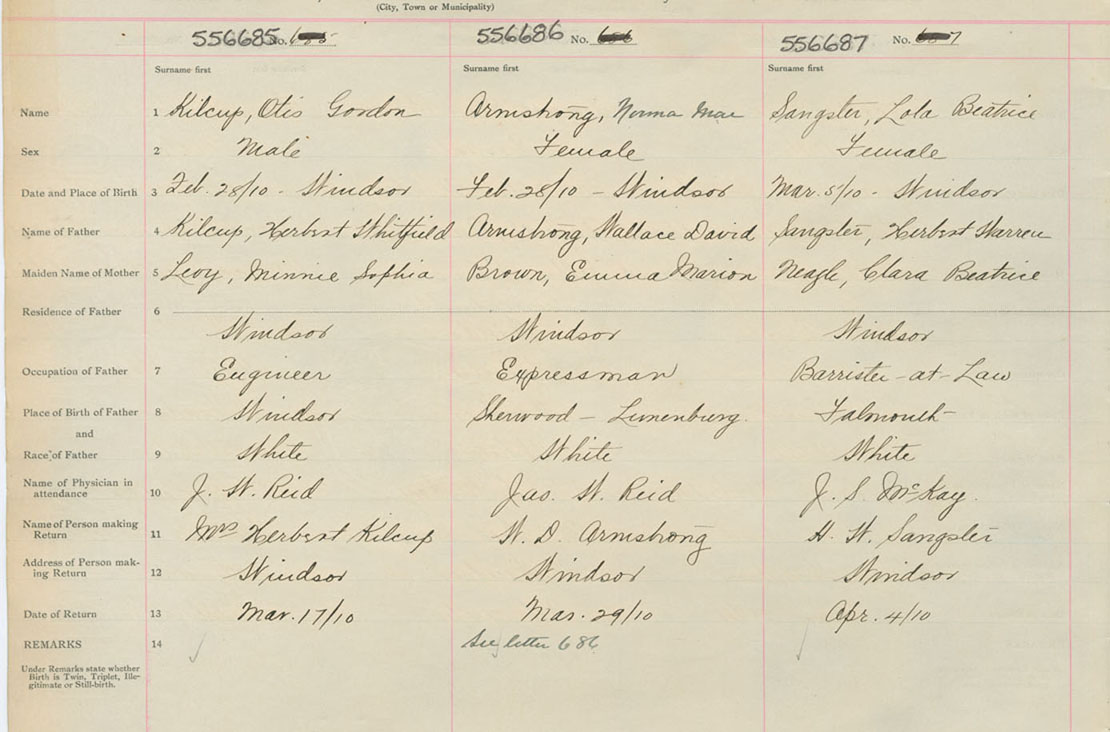 (City, Town or Municipality)
556685 No. 556686 No. 556687 No.
Surname first Surname first Surname first
Name 1 Kilcup, Otis Gordon Armstrong, Norma Mae Sangster, Lola Beatrice
Sex 2 Male Female Female
Date and Place of Birth 3 Feb. 28/10 - Windsor Feb. 28/10 - Windsor Mar. 5/10 - Windsor
Name of Father 4 Kilcup, Herbert Whitfield Armstrong, Wallace David Sangster, Herbert Warren
Maiden Name of Mother 5 Levy, Minnie Sophia Brown, Emma Marion Neagle, Clara Beatrice
Residence of Father 6
Windsor Windsor Windsor
Occupation of Father 7 Engineer Expressman Barrister-at-Law
Place of Birth of Father 8 Windsor Sherwood - Lunenburg. Falmouth
and
Race of Father 9 White White White
Name of Physician in
attendance 10 J. W. Reid Jas. W. Reid J. S. McKay.
Name of Person making
Return 11 Mrs Herbert Kilcup W. D. Armstrong H. W. Sangster
Address of Person mak-
ing Return 12 Windsor Windsor Windsor
Date of Return 13 Mar. 17/10 Mar. 29/10 Apr. 4/10
REMARKS 14 See letter 686
Under Remarks state whether
Birth is Twin, Triplet, Ille-
gitimate or Still-birth.